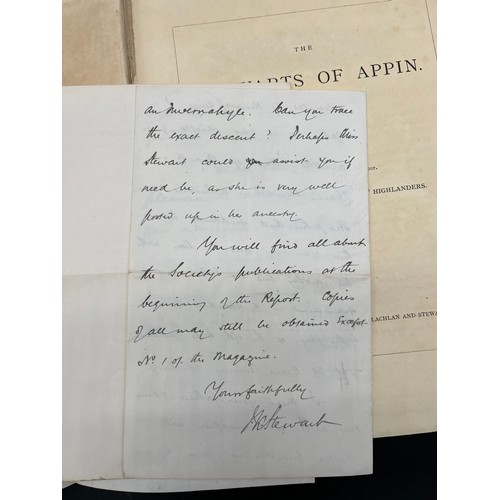 THE
ARTS OF APPIN.
HIGHLANDERS.
LACHLAN AND STEWA
an Invernahyle. Can you trace
the exact descent? Perhaps Miss
Stewart could assist you if
need be, as she is very well
posted up in her ancestry.
You will find all about
the Society's publications at the
beginning of the Report. Copies
of all may still be obtained Except
No 1 of the Magazine.
Yours faithfully
JKStewart